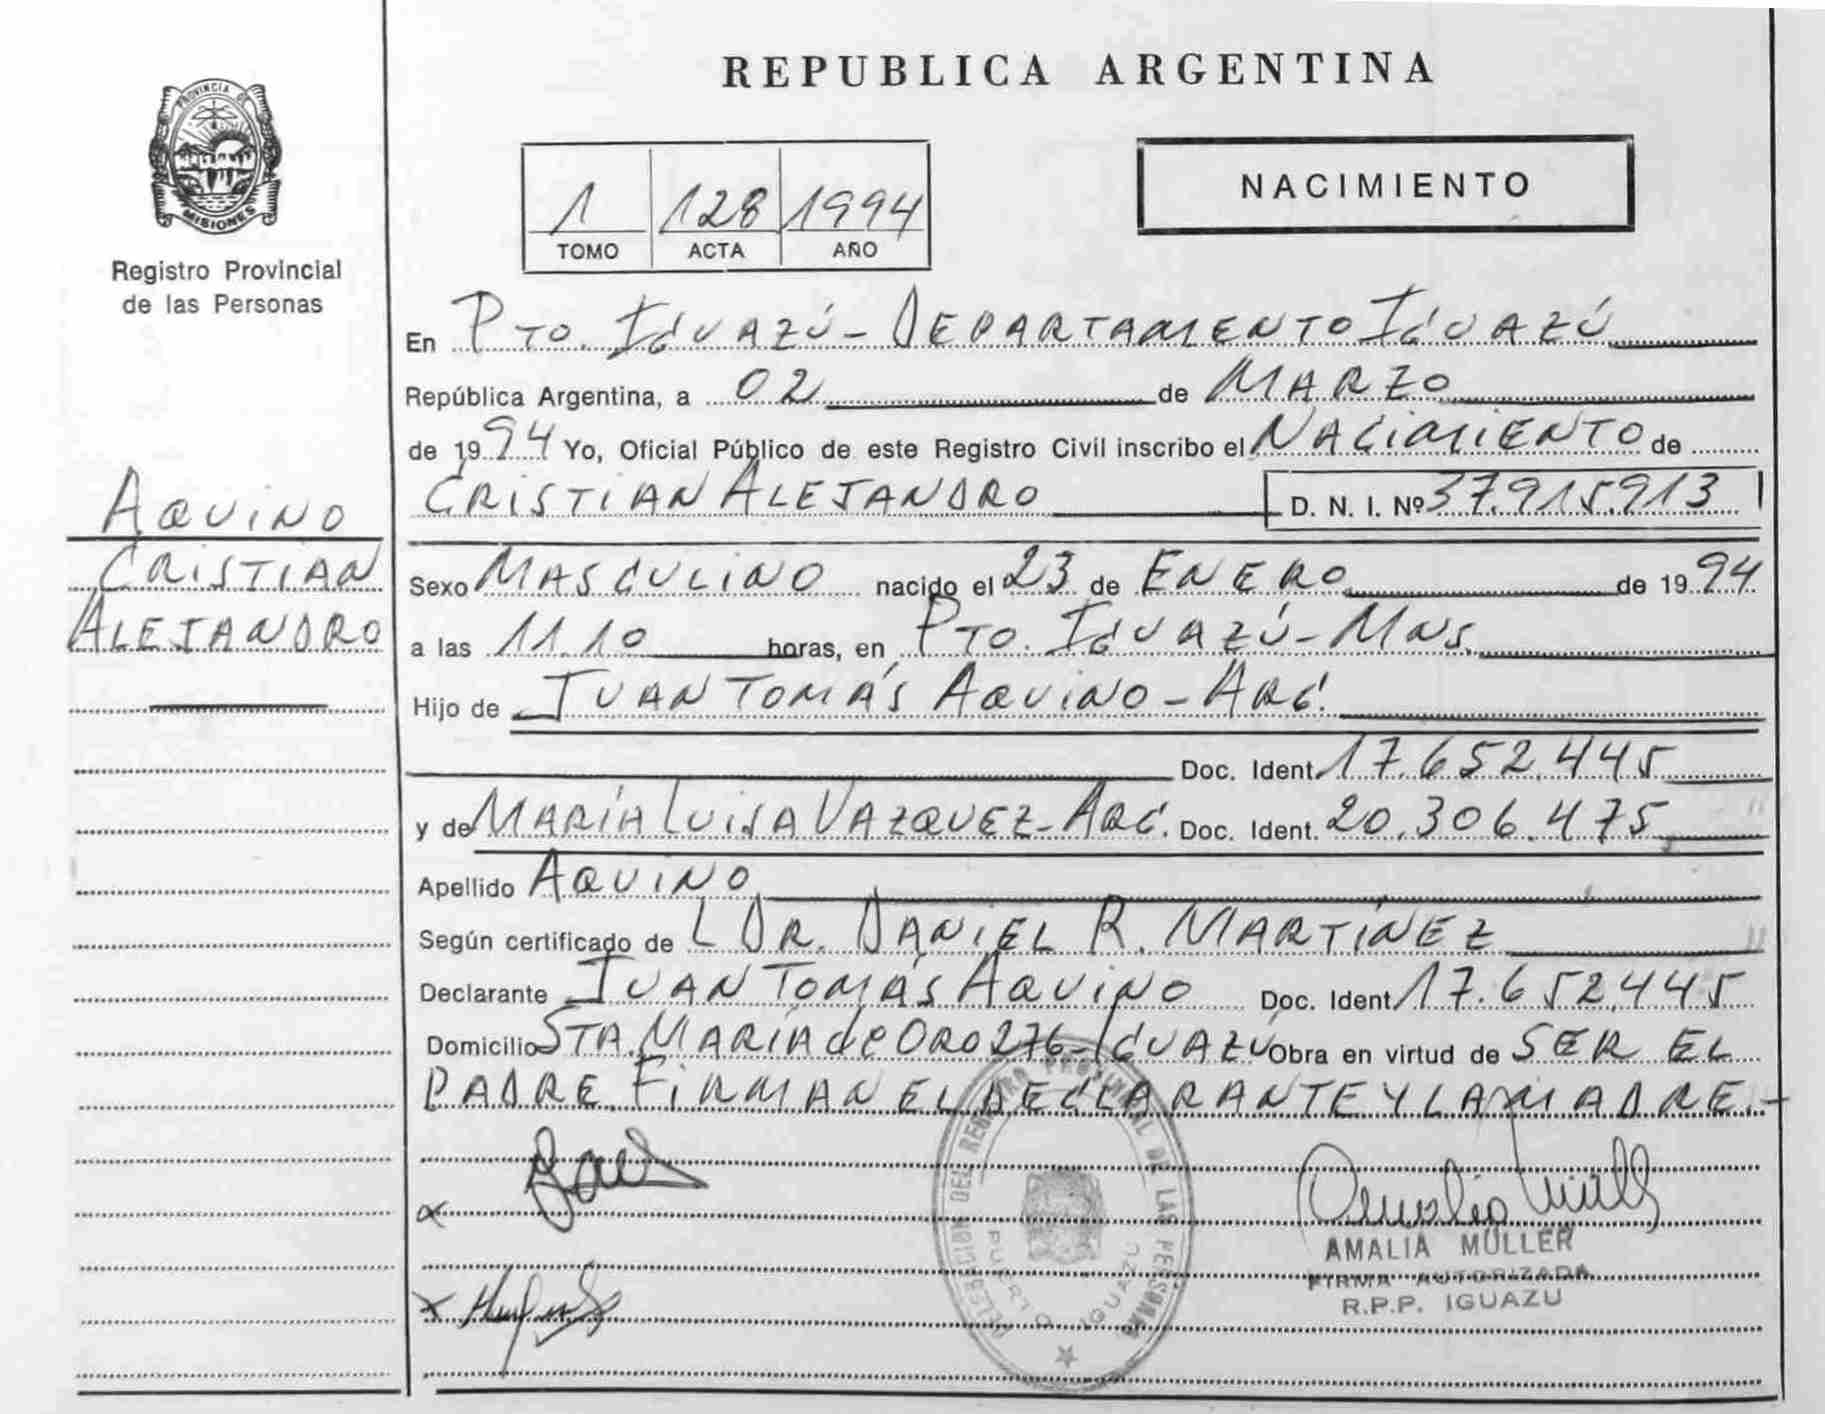 PROVINCIA DE
MISIONES
Registro Provincial
de las Personas
AQUINO
CRISTIAN
ALEJANDRO
REPUBLICA ARGENTINA
1 128 1994
TOMO ACTA AÑO
NACIMIENTO
En PTO. IGUAZÚ - DEPARTAMENTO IGUAZÚ
República Argentina, a 02 de MARZO
de 1994 Yo, Oficial Público de este Registro Civil inscribo el NACIMIENTO de
CRISTIAN ALEJANDRO D. N. I. Nº 37.915.913
Sexo MASCULINO nacido el 23 de ENERO de 1994
a las 11.10 horas, en PTO. IGUAZÚ - MNS.
Hijo de JUAN TOMÁS AQUINO - ARG.
Doc. Ident. 17.652.445
y de MARÍA LUISA VAZQUEZ - ARG. Doc. Ident. 20.306.475
Apellido AQUINO
Según certificado de L DR. DANIEL R. MARTÍNEZ
Declarante JUAN TOMÁS AQUINO Doc. Ident. 17.652.445
Domicilio STA. MARÍA de ORO 276 - IGUAZÚ Obra en virtud de SER EL
PADRE. FIRMAN EL DECLARANTE Y LA MADRE.-
DELEGACION DEL REGISTRO PROVINCIAL DE LAS PERSONAS
PUERTO IGUAZU
Amalia Müller
AMALIA MÜLLER
FIRMA AUTORIZADA
R.P.P. IGUAZU